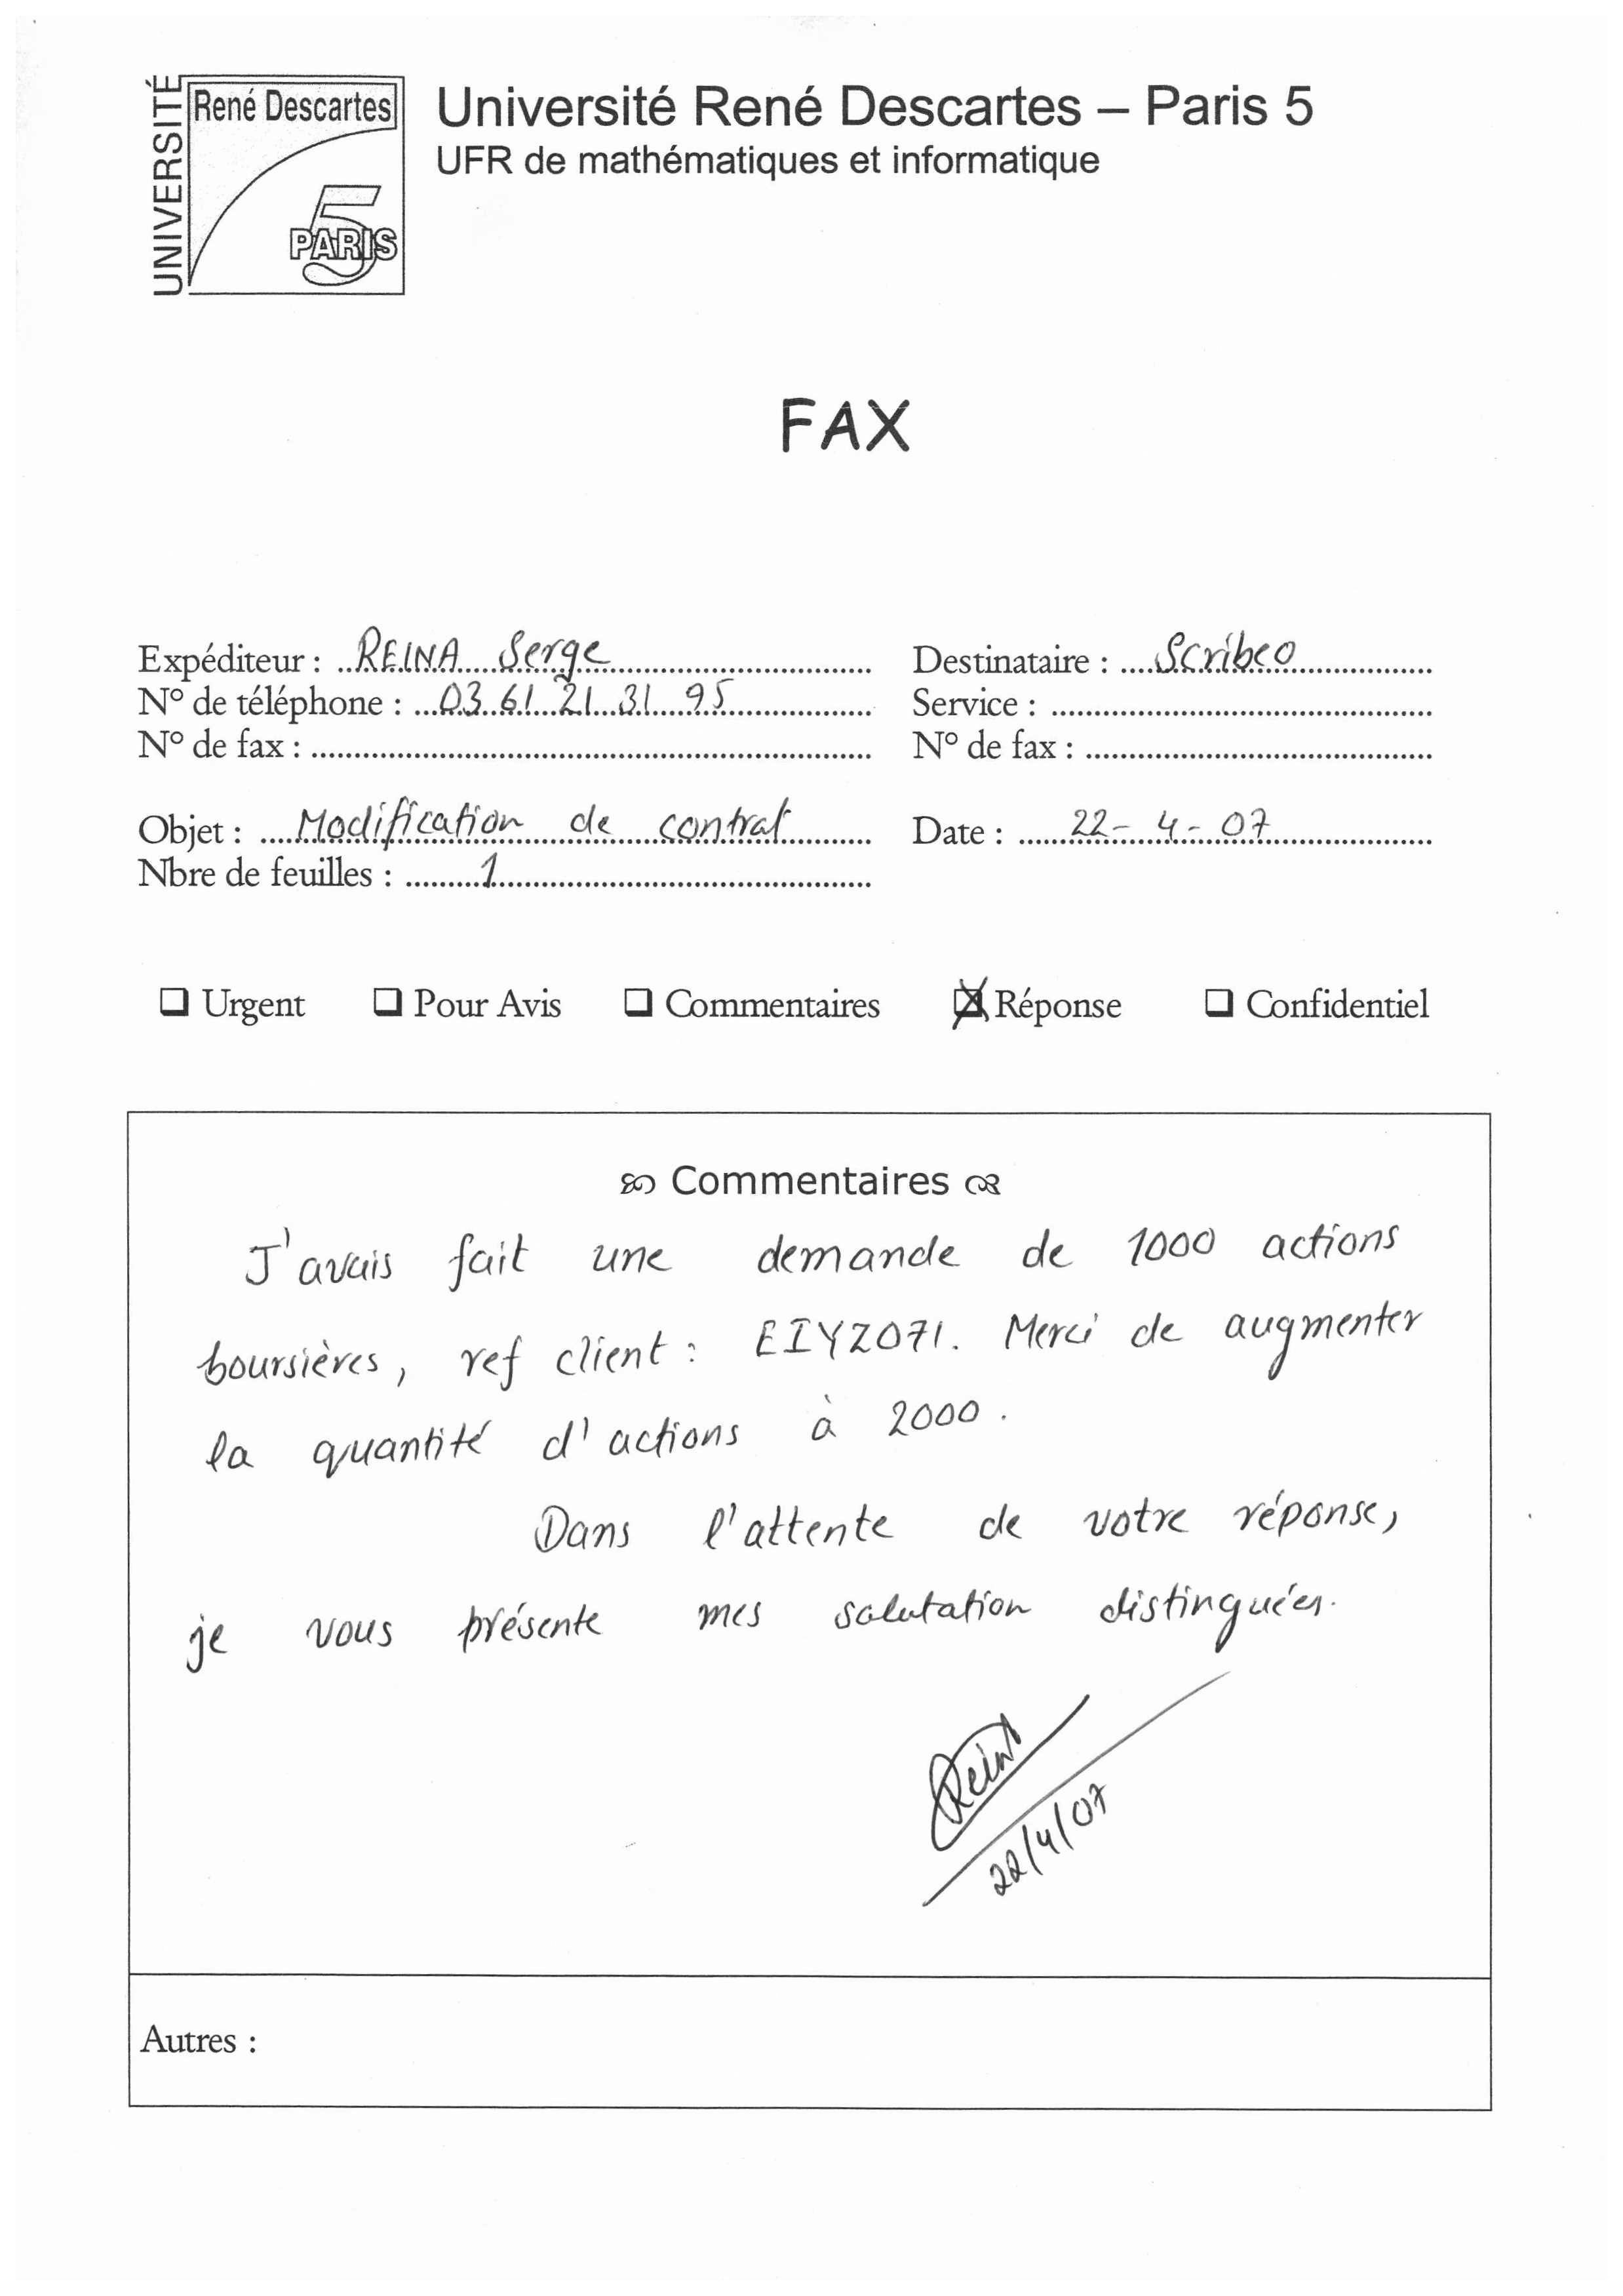 UNIVERSITÉ
René Descartes
PARIS 5
Université René Descartes – Paris 5
UFR de mathématiques et informatique
FAX
Expéditeur : REINA Serge
N° de téléphone : 03 61 21 31 95
N° de fax :
Destinataire : Scribeo
Service :
N° de fax :
Objet : Modification de contrat
Nbre de feuilles : 1
Date : 22-4-07
Urgent Pour Avis Commentaires Réponse Confidentiel
Commentaires
J'avais fait une demande de 1000 actions
boursières, ref client : EIYZ071. Merci de augmenter
la quantité d'actions à 2000.
Dans l'attente de votre réponse,
je vous présente mes salutation distinguées.
22/4/07
Autres :